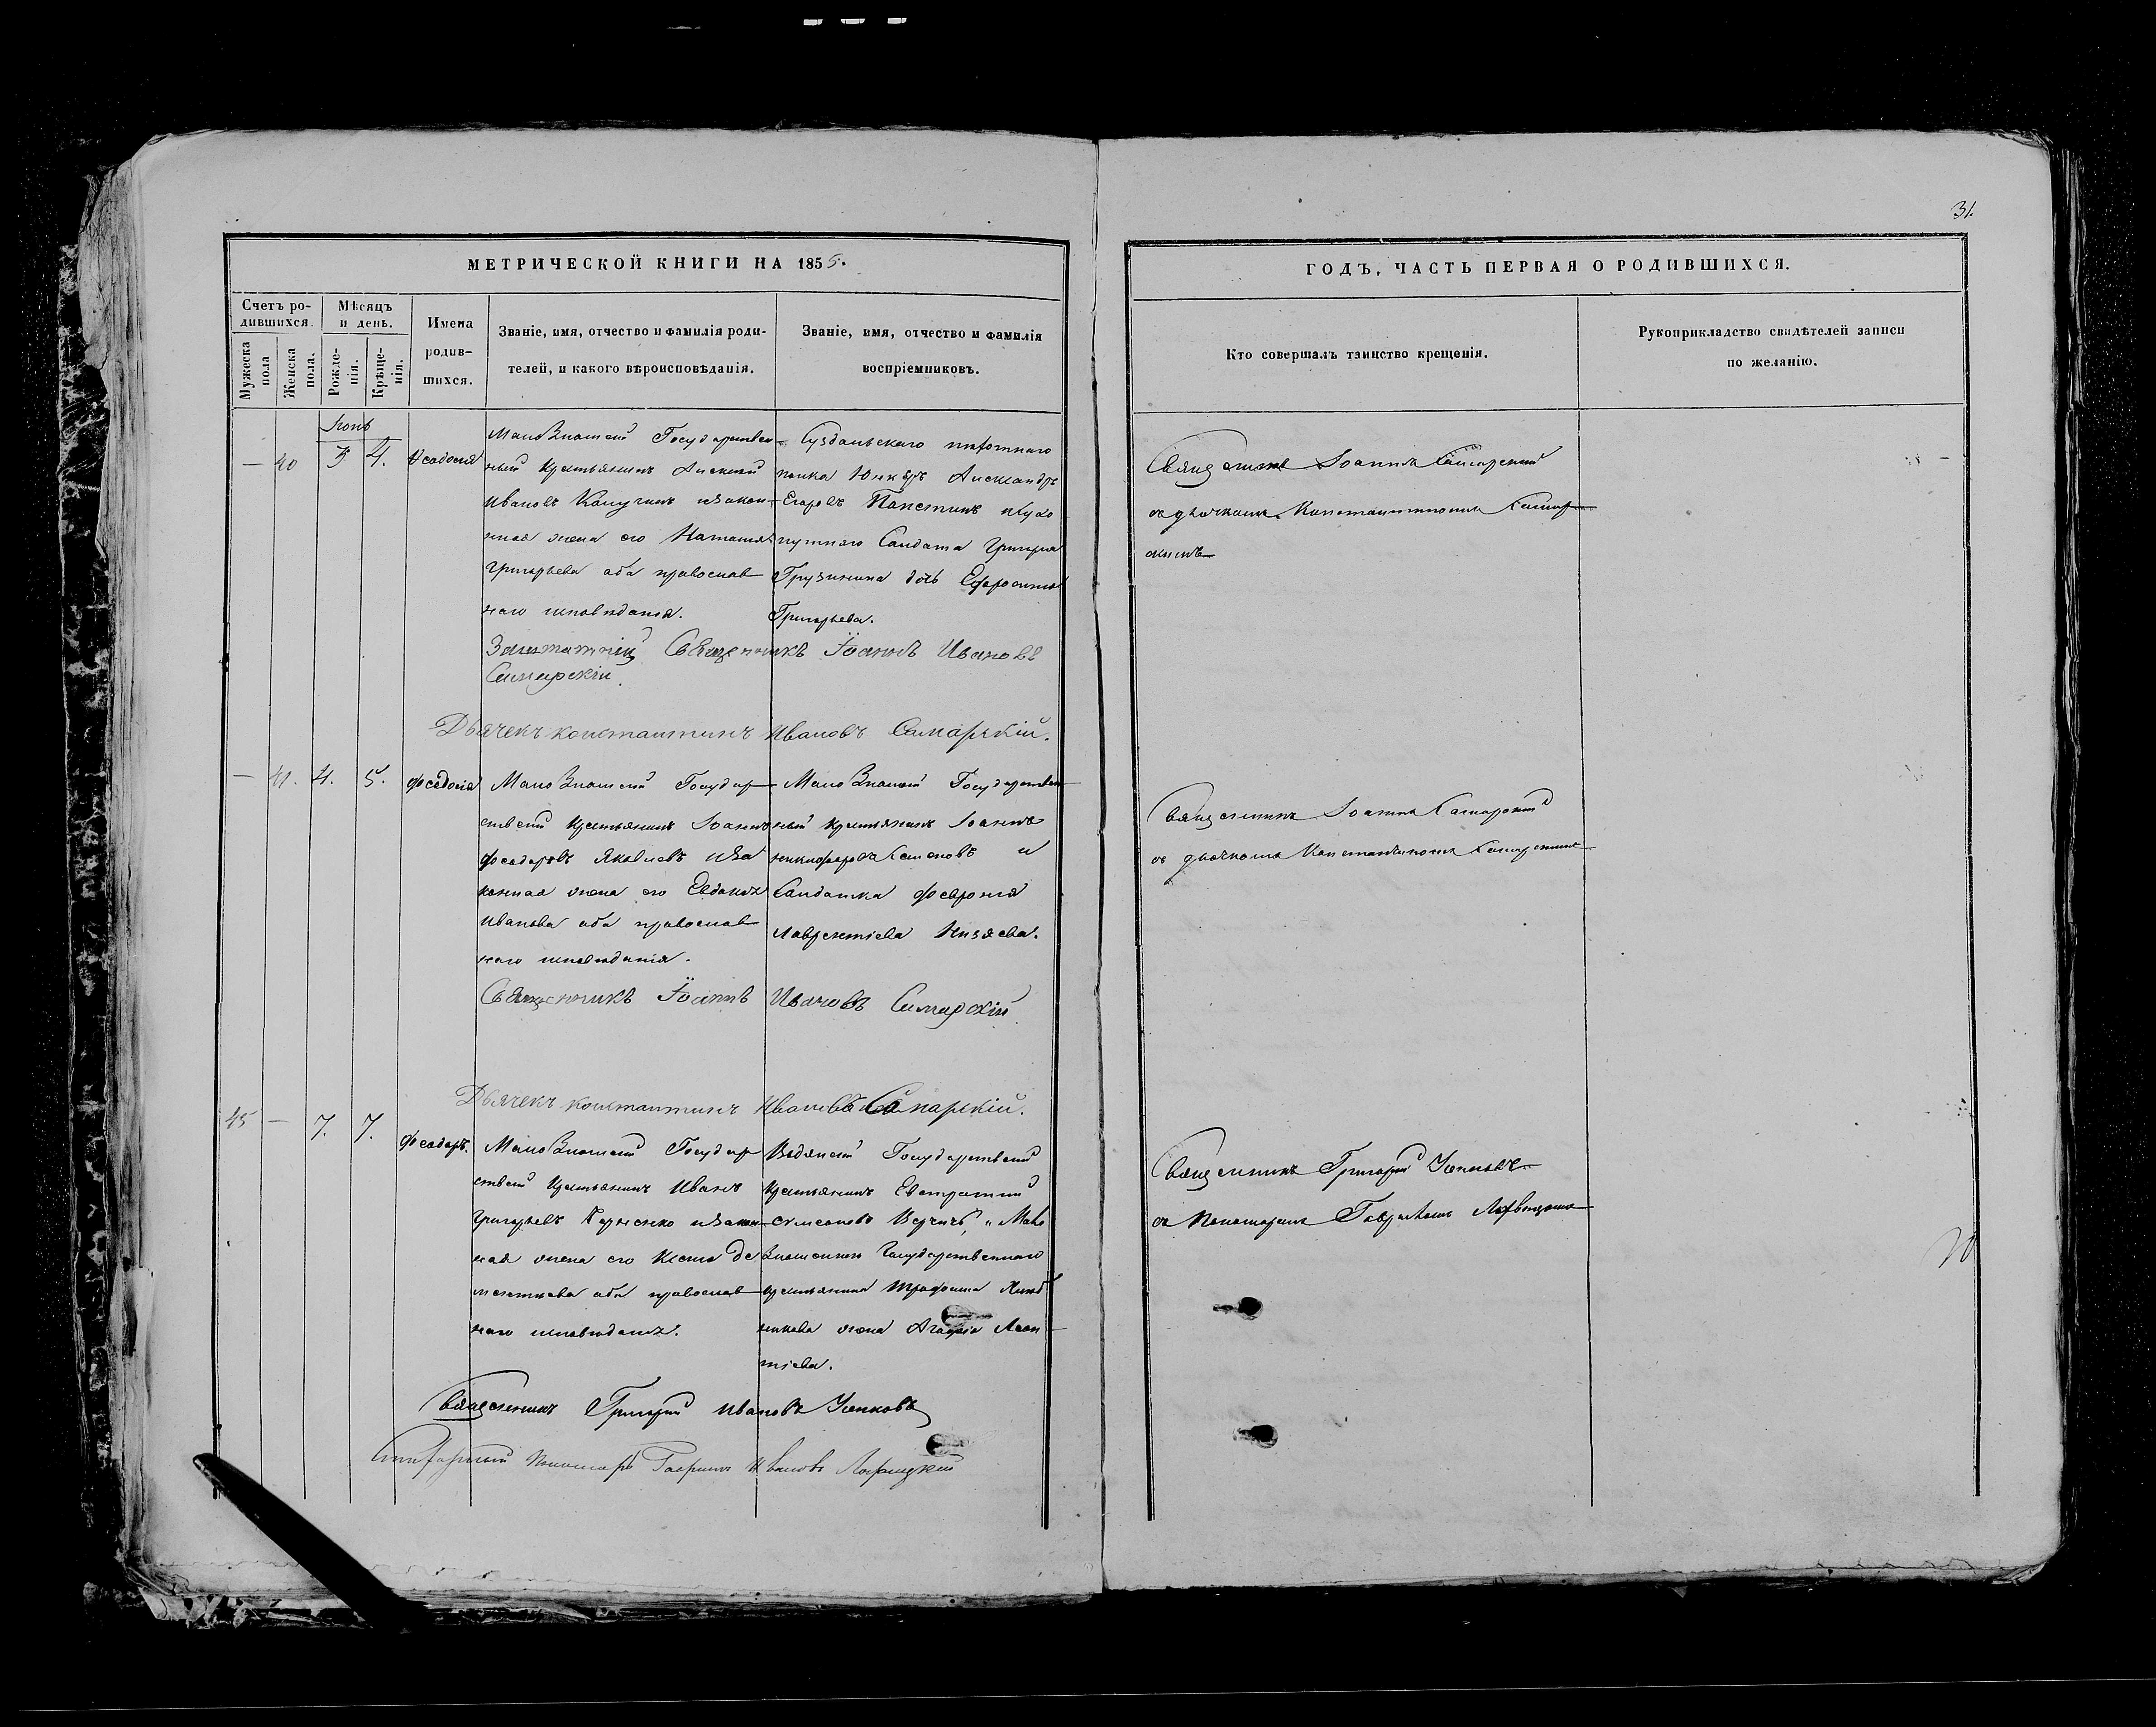 31.
МЕТРИЧЕСКОЙ КНИГИ НА 1855.
Счетъ ро-
дившихся.
Мужеска пола
Женска пола.
Мѣсяцъ
и день.
Рожде-
нія.
Крѣще-
нія.
Имена
родив-
шихся.
Званіе, имя, отчество и фамилія роди-
телей, и какого вѣроисповѣданія.
Званіе, имя, отчество и фамилія
воспріемниковъ.
— 40 4.
Маловнаменск Государствен
ный Крестьянинъ Алексей
Ивановъ изакон
ная жена его Наталья
Григорьева оба православ
наго исповѣданія.
Суздальскаго пѣхотнаго
полка Юнкеръ Александръ
Егоровъ и
Солдата Григорія
Грузинина дочь Ефросинія
Григорьева.
Заштатній Священникъ Іоаннъ Ивановъ
Самарскій.
Дьячекъ константинъ Ивановъ Самарскій.
— 41. 4. 5. Феодосія
Государ
ствений Крестьянинъ Іоаннъ
Феодоровъ Яковлевъ иза
конная жена его Евдокія
Иванова оба православ
наго исповѣданія.
Государствен
ный крестьянинъ Іоаннъ
никифоровъ Семеновъ и
Солдатка Феврония
Лаврентіева Низяева.
Священникъ Іоаннъ Ивановъ Самарскій
Дьячекъ константинъ Ивановъ Самарскій.
45 — 7. 7. Феодоръ.
Государ
ствений Крестьянинъ Иванъ
Григорьевъ изакон
ная жена его Ксения Де
ментиева оба православ
наго исповѣданія.
Государствений
крестьянинъ Евстратий
и Мало
Государственнаго
крестьянина Трофима
жена Агафія Леон
тіева.
Священникъ Григорий Ивановъ
Пономарь Гавриилъ Ивановъ
ГОДЪ, ЧАСТЬ ПЕРВАЯ О РОДИВШИХСЯ.
Кто совершалъ таинство крещенія.
Рукоприкладство свидѣтелей записи
по желанію.
Священникъ Іоаннъ Самарский
съ дьячкомъ Константиномъ Самар
скимъ
Священникъ Іоаннъ Самарский
съ дьячкомъ Константиномъ Самарскимъ
Священникъ Григорий
съ Пономаремъ Гавриломъ